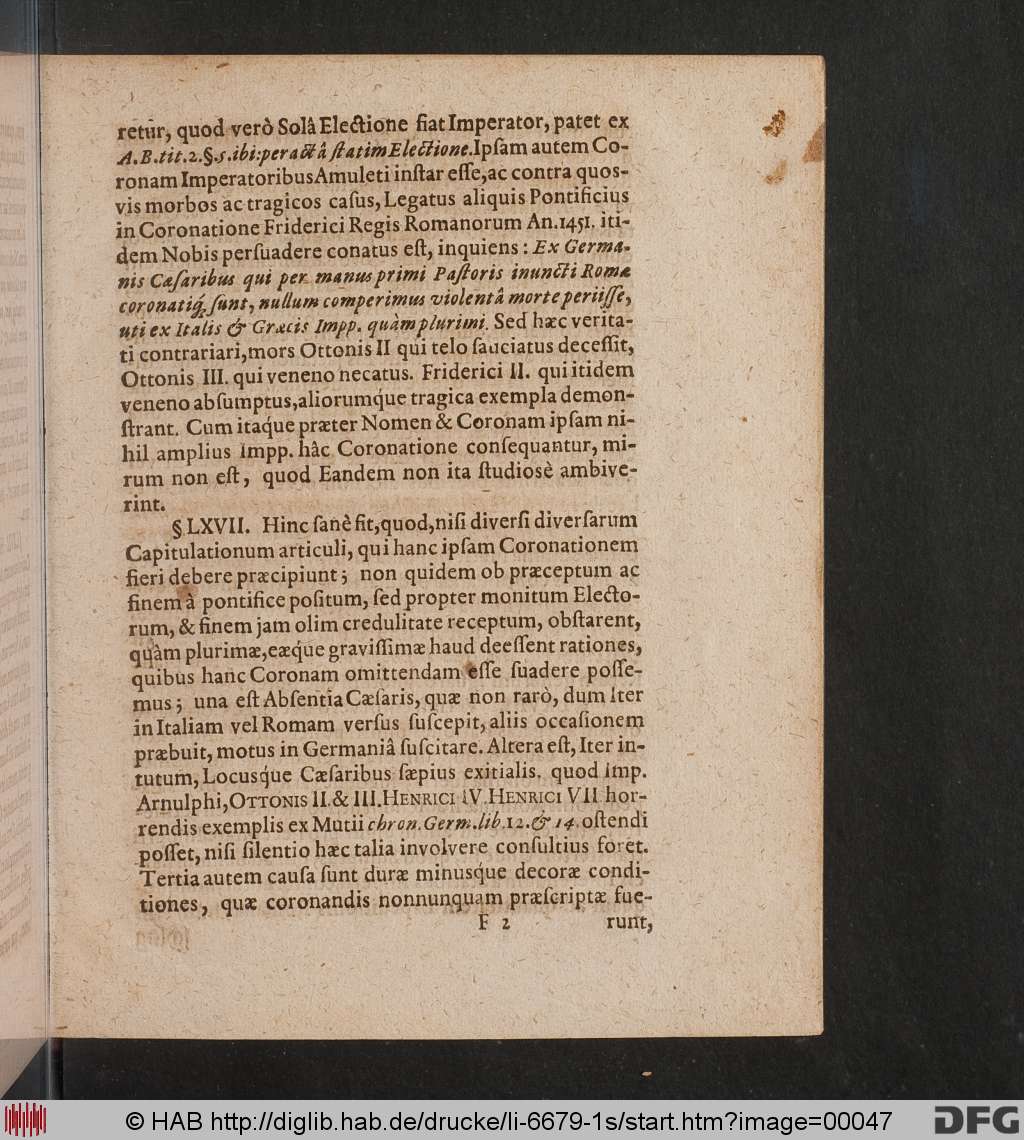 retur, quod verò Solâ Electione fiat Imperator, patet ex
A. B. tit. 2. §. 5. ibi: peractâ ſtatim Electione. Ipſam autem Co-
ronam Imperatoribus Amuleti inſtar eſſe, ac contra quos-
vis morbos ac tragicos caſus, Legatus aliquis Pontificius
in Coronatione Friderici Regis Romanorum An. 1451. iti-
dem Nobis perſuadere conatus eſt, inquiens: Ex Germa-
nis Cæſaribus qui per manus primi Paſtoris inuncti Romæ
coronatiq́; ſunt, nullum comperimus violentâ morte periiſſe,
uti ex Italis & Græcis Impp. quàm plurimi. Sed hæc verita-
ti contrariari, mors Ottonis II qui telo ſauciatus deceſſit,
Ottonis III. qui veneno necatus. Friderici II. qui itidem
veneno abſumptus, aliorumq́ue tragica exempla demon-
ſtrant. Cum itaq́ue præter Nomen & Coronam ipſam ni-
hil amplius Impp. hâc Coronatione conſequantur, mi-
rum non eſt, quod Eandem non ita ſtudiosè ambive-
rint.
§ LXVII. Hinc ſanè fit, quod, niſi diverſi diverſarum
Capitulationum articuli, qui hanc ipſam Coronationem
fieri debere præcipiunt; non quidem ob præceptum ac
finem à pontifice poſitum, ſed propter monitum Electo-
rum, & finem jam olim credulitate receptum, obſtarent,
quàm plurimæ, eæque graviſſimæ haud deeſſent rationes,
quibus hanc Coronam omittendam eſſe ſuadere poſſe-
mus; una eſt Abſentia Cæſaris, quæ non rarò, dum iter
in Italiam vel Romam verſus ſuſcepit, aliis occaſionem
præbuit, motus in Germaniâ ſuſcitare. Altera eſt, Iter in-
tutum, Locusq́ue Cæſaribus ſæpius exitialis. quod Imp.
Arnulphi, OTTONIS II. & III. HENRICI IV. HENRICI VII hor-
rendis exemplis ex Mutii chron. Germ. lib. 12. & 14. oſtendi
poſſet, niſi ſilentio hæc talia involvere conſultius foret.
Tertia autem cauſa ſunt duræ minusq́ue decoræ condi-
tiones, quæ coronandis nonnunquam præſcriptæ fue-
F 2 runt,
© HAB http://diglib.hab.de/drucke/li-6679-1s/start.htm?image=00047
DFG